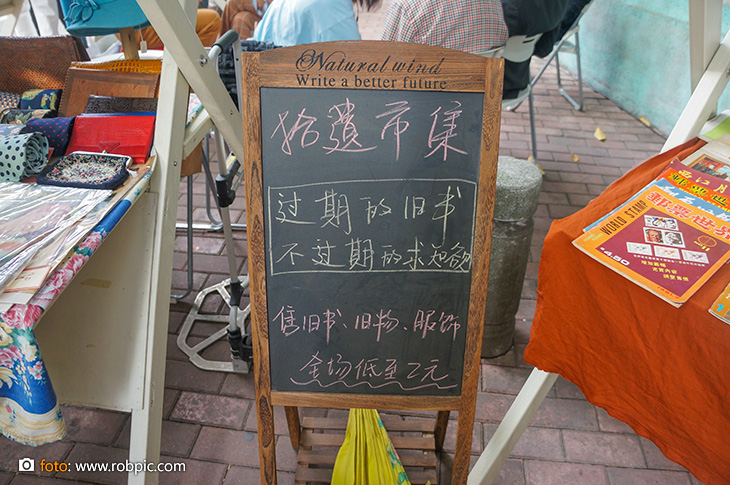 Natural wind
Write a better future
拾遗市集
过期的旧书
不过期的求知欲
售旧书、旧物、服饰
全场低至2元
WORLD STAMP
$4.50
foto: www.robpic.com